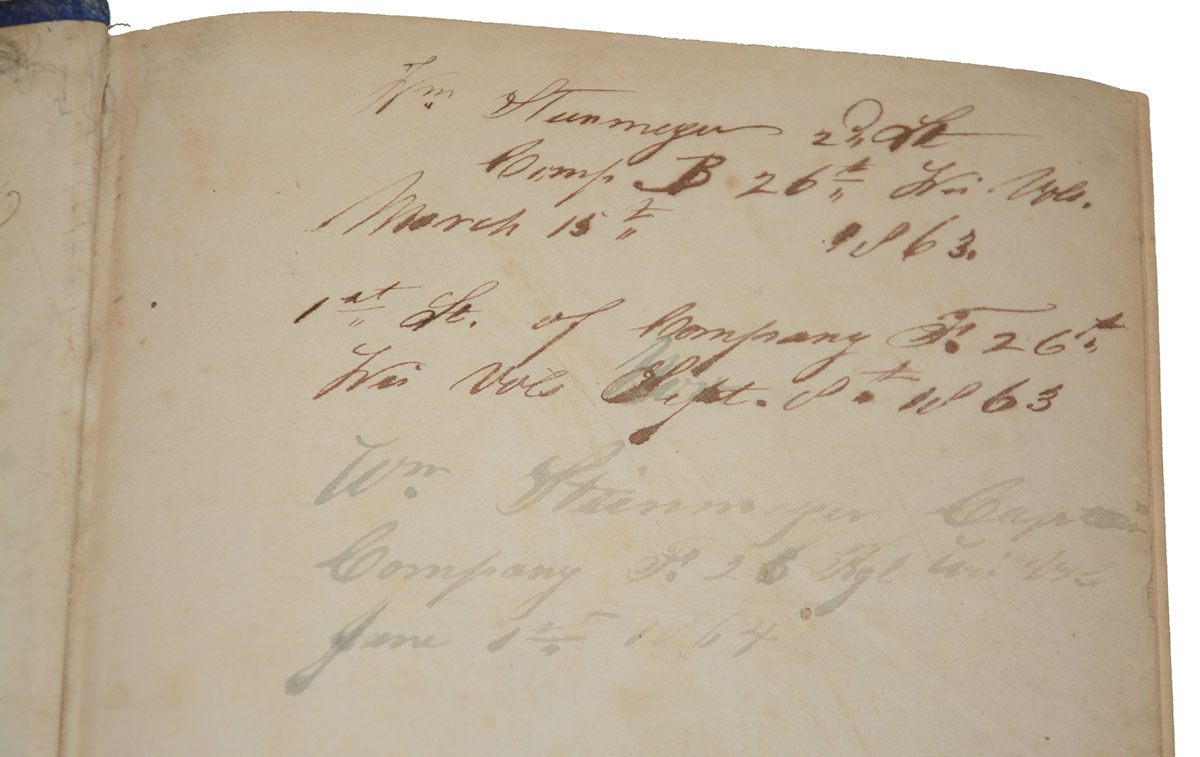 Wm Steinmeyer 2d Lt
Comp B 26t Wis Vols.
March 15t 1863.
1st Lt. of Company F. 26t
Wis Vols Sept. 8t 1863
Wm Steinmeyer Captain
Company F. 26 Rgt Wis Vols
June 1st 1864